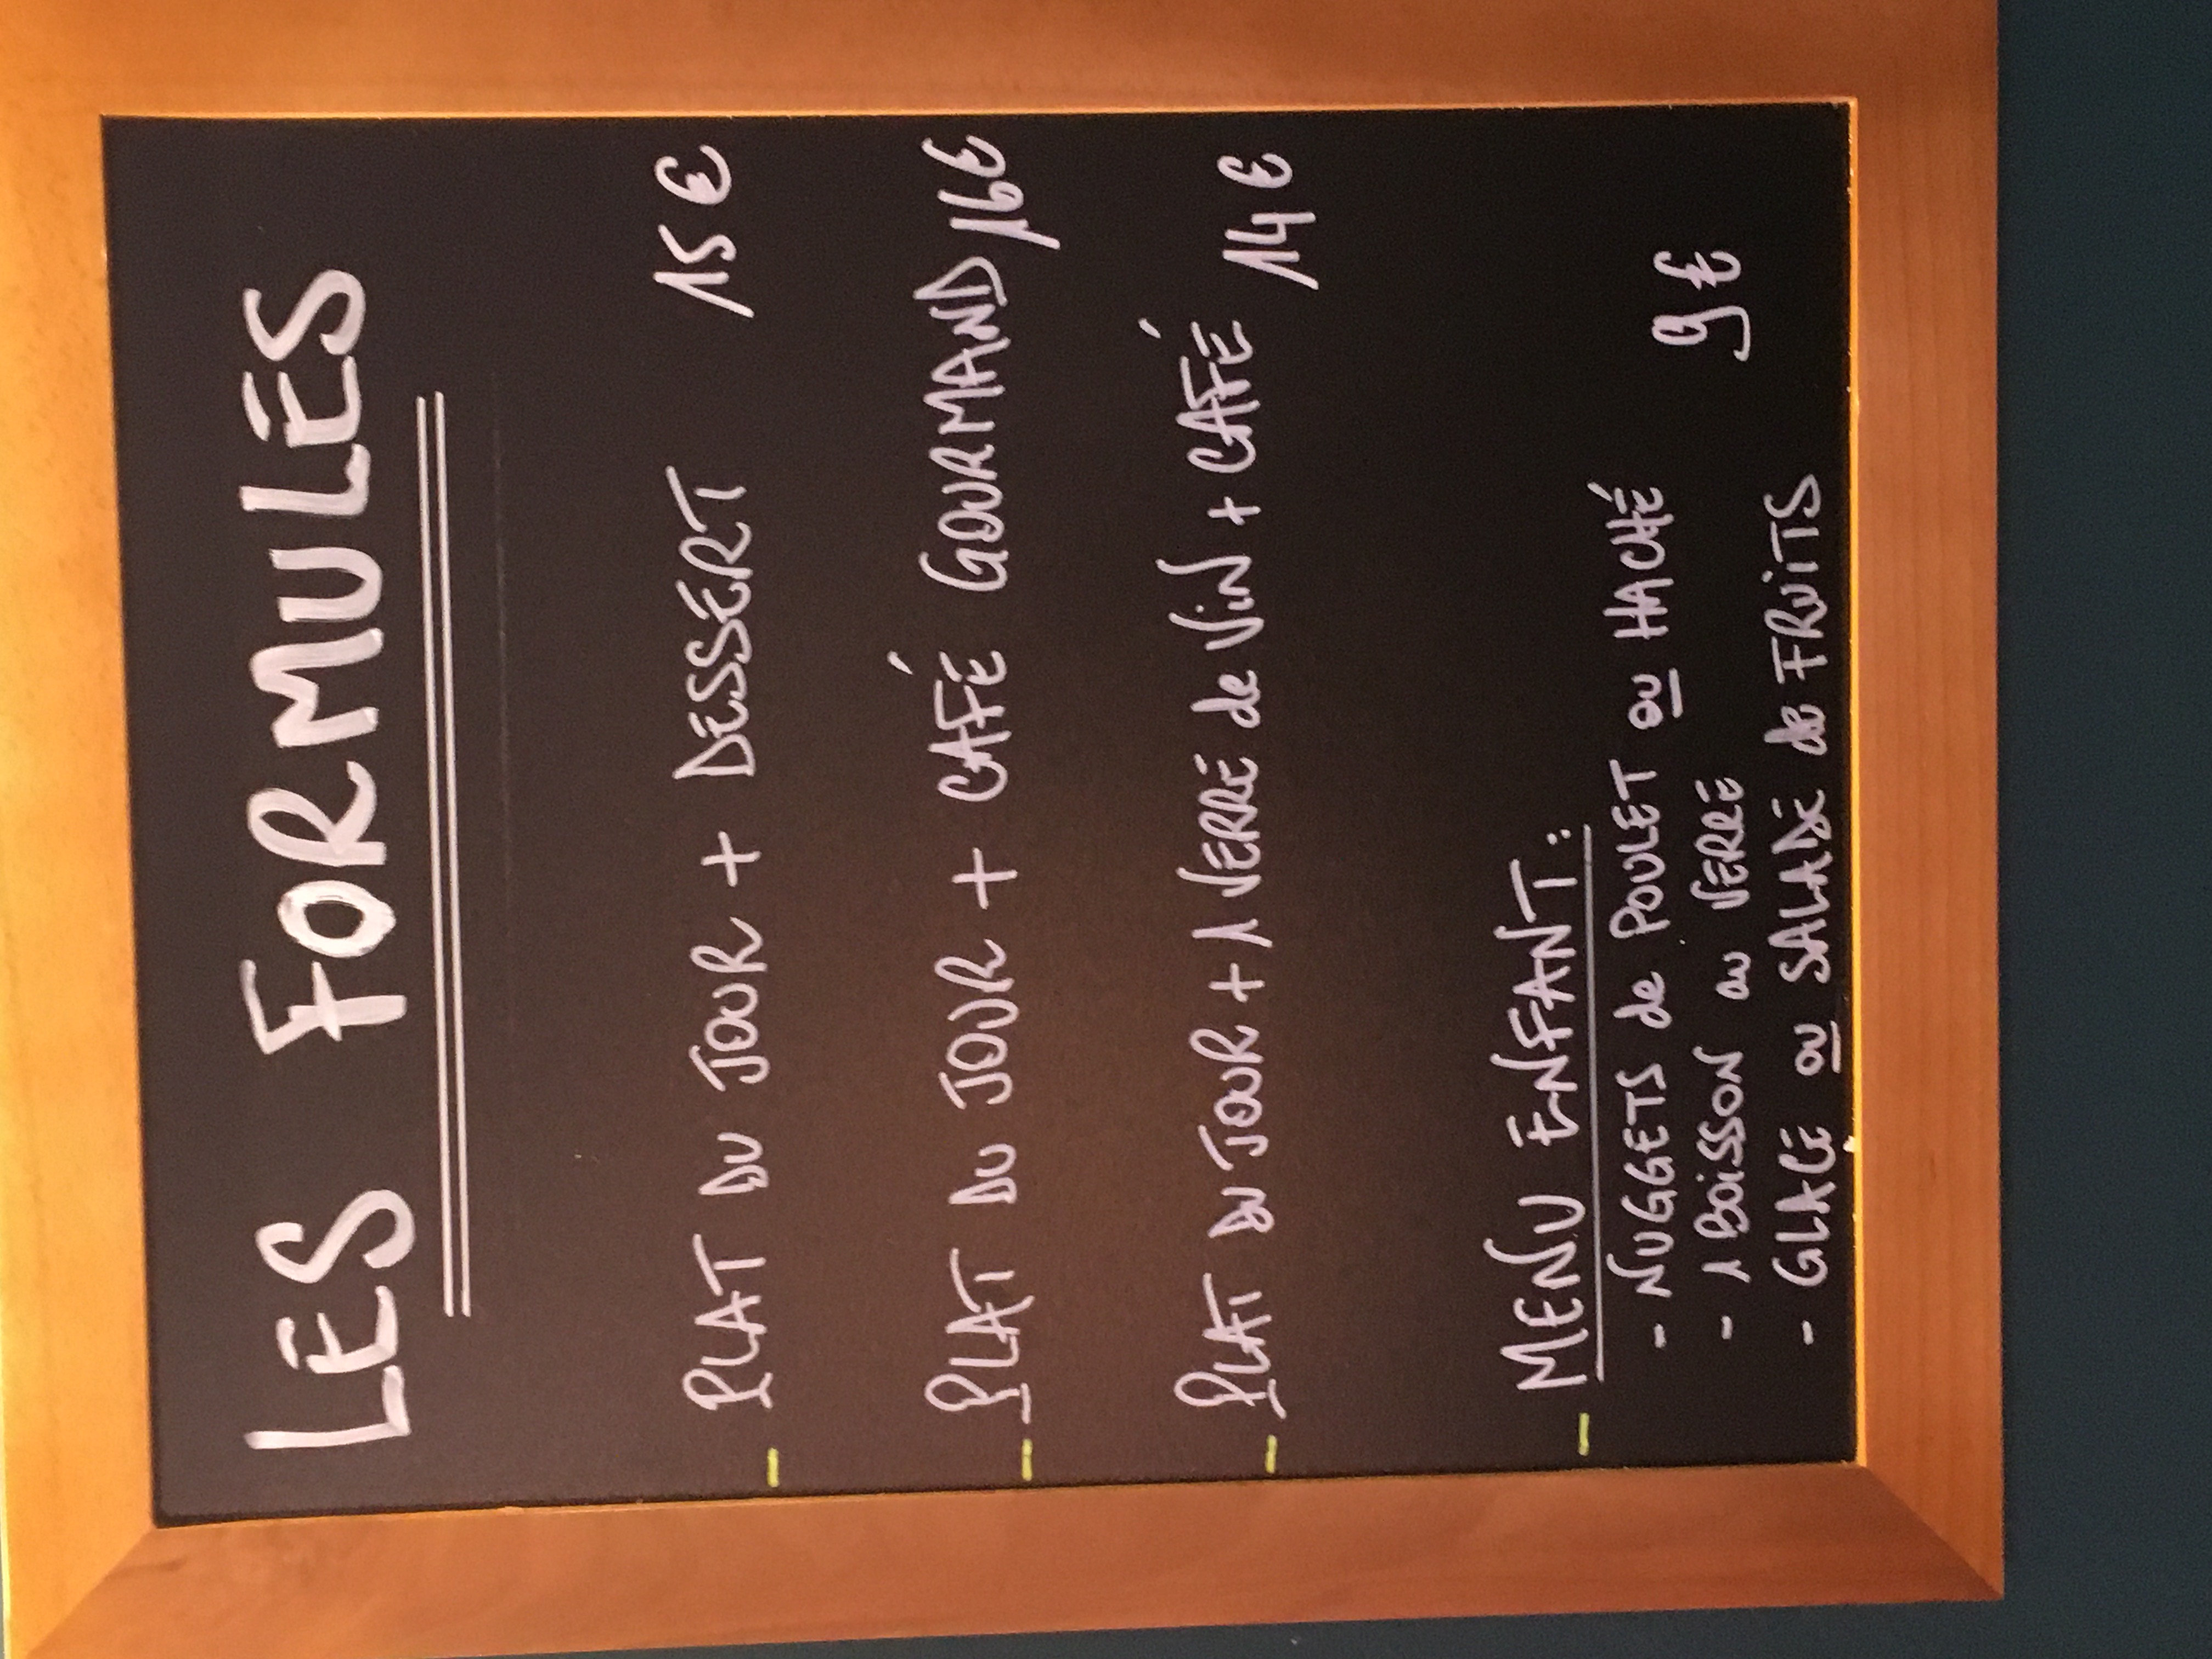 LES FORMULES
- PLAT DU JOUR + DESSERT 15 €
- PLAT DU JOUR + CAFÉ GOURMAND 16€
- PLAT DU JOUR + 1 VERRE de ViN + CAFÉ 14 €
- MENU ENFANT:
- NUGGETS de POULET ou HACHÉ
- 1 BOiSSON au VERRE 9 €
- GLACE ou SALADE de FRUiTS